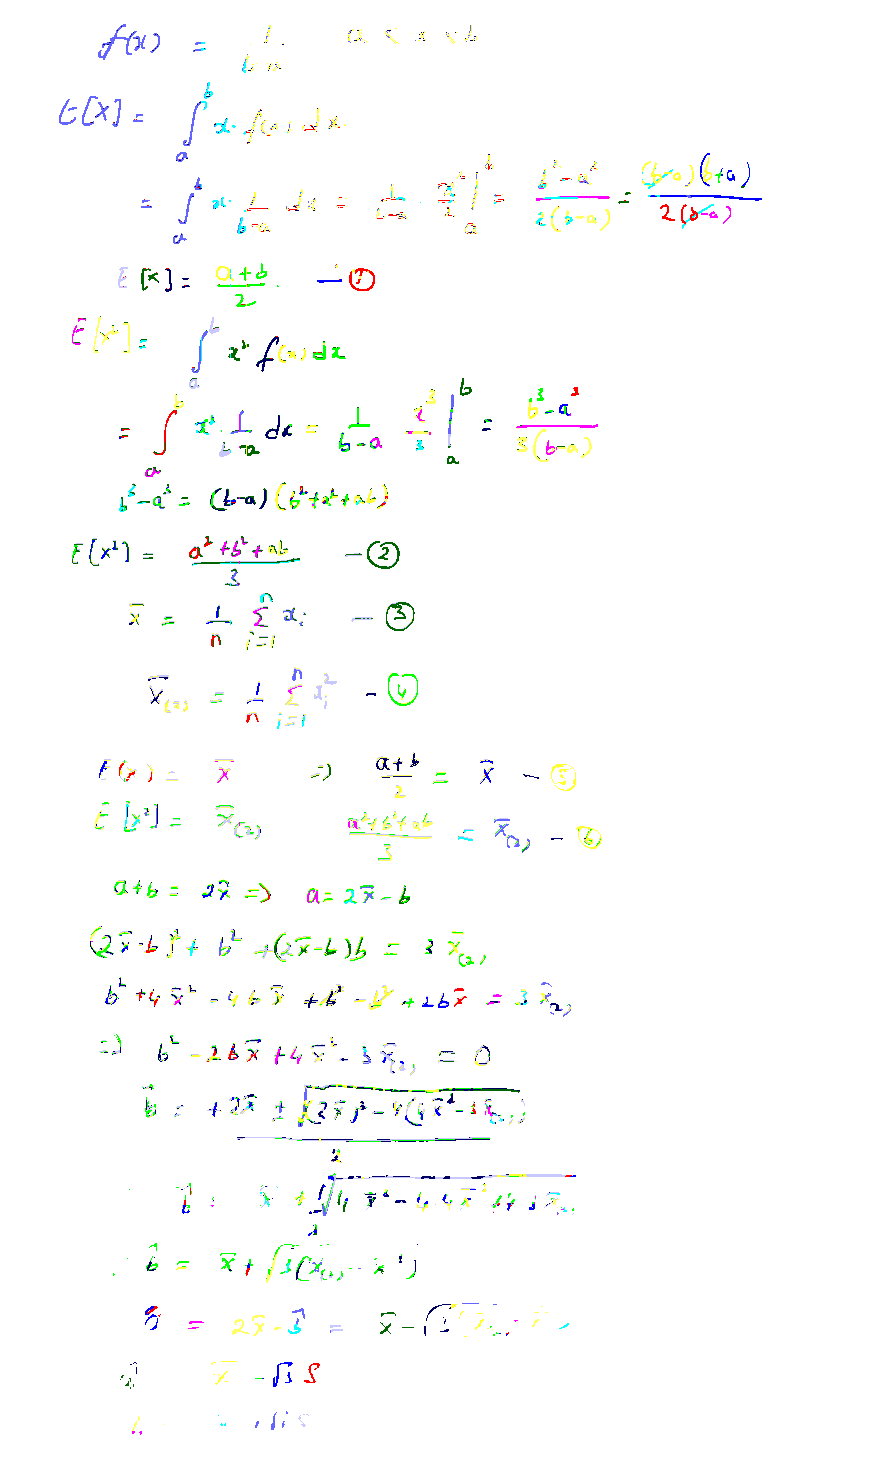 f(x) = 1/(b-a) a < x < b
E[X] = ∫_a^b x. f(x) dx
= ∫_a^b x. 1/(b-a) dx = 1/(b-a) x²/2 |_a^b = (b²-a²)/(2(b-a)) = (b-a)(b+a)/(2(b-a))
E[X] = (a+b)/2 — ①
E[X²] = ∫_a^b x² f(x) dx
= ∫_a^b x² 1/(b-a) dx = 1/(b-a) x³/3 |_a^b = (b³-a³)/(3(b-a))
b³-a³ = (b-a)(b²+a²+ab)
E[X²] = (a²+b²+ab)/3 — ②
x̄ = 1/n Σ_{i=1}^n x_i — ③
x̄_(2) = 1/n Σ_{i=1}^n x_i² — ④
E(x) = x̄ ⇒ (a+b)/2 = x̄ — ⑤
E[x²] = x̄_(2) (a²+b²+ab)/3 = x̄_(2) — ⑥
a+b = 2x̄ ⇒ a = 2x̄-b
(2x̄-b)² + b² + (2x̄-b)b = 3 x̄_(2)
b²+4x̄² - 4bx̄ + b² - b² + 2bx̄ = 3 x̄_(2)
⇒ b² - 2bx̄ + 4x̄² - 3x̄_(2) = 0
b̂ = (+2x̄ ± √((2x̄)² - 4(4x̄² - 3x̄_(2))))/2
b̂ = x̄ + 1/2 √(4x̄² - 4.4x̄² + 4.3x̄_(2))
b̂ = x̄ + √(3(x̄_(2) - x̄²))
â = 2x̄ - b̂ = x̄ - √(3(x̄_(2) - x̄²))
â x̄ - √3 S